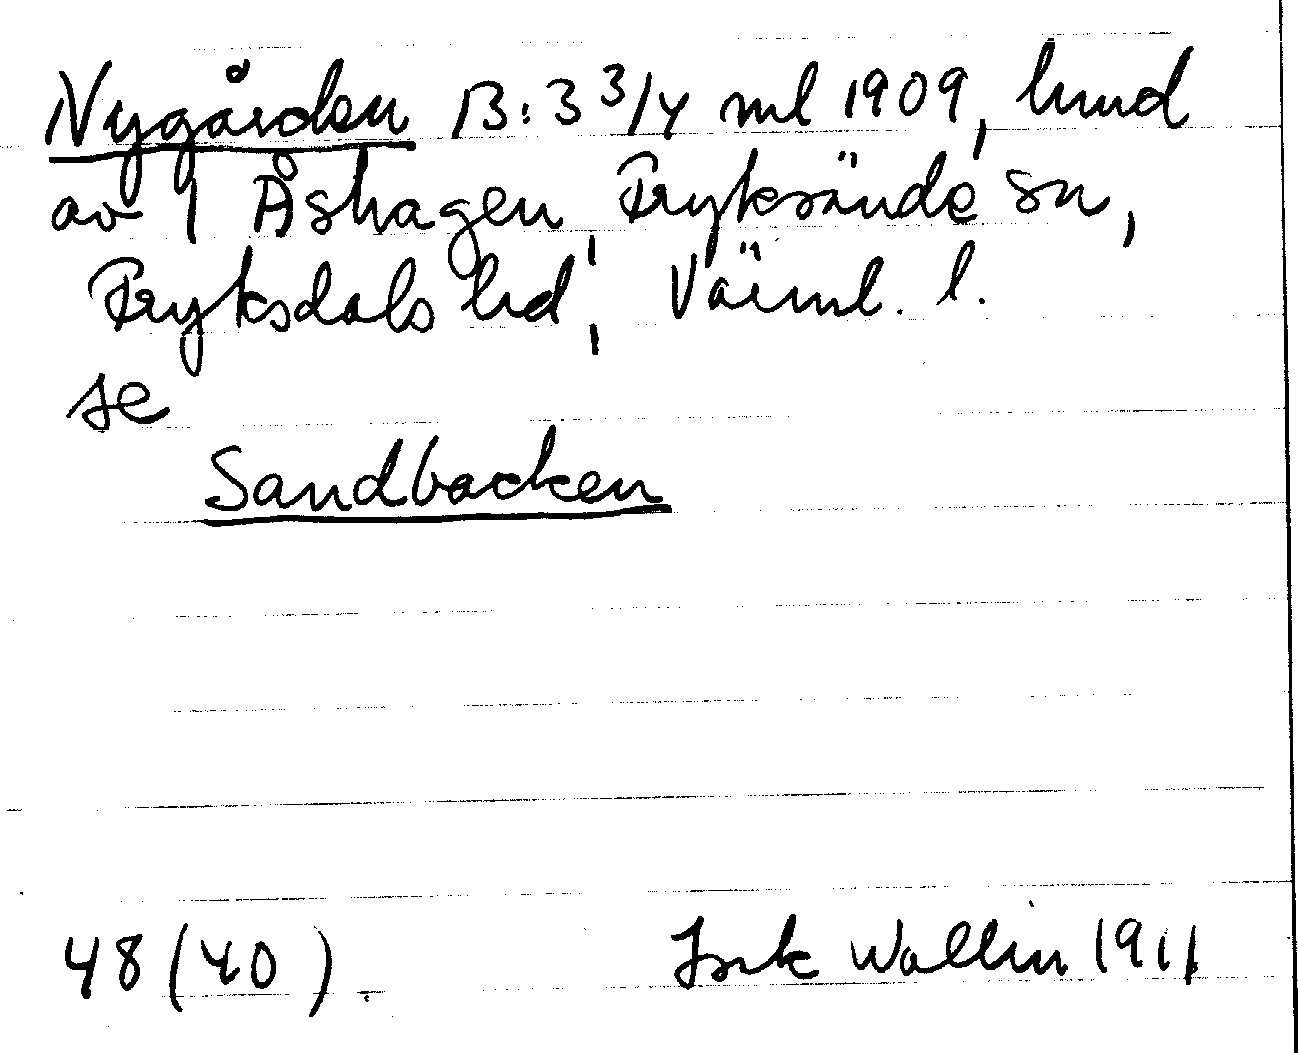 Nygården B: 3 3/4 ml 1909, hmd
av 1 Åshagen, Fryksände sn,
Fryksdals hd, Värml. l.
se
Sandbacken
48 (40). Wallin 1911